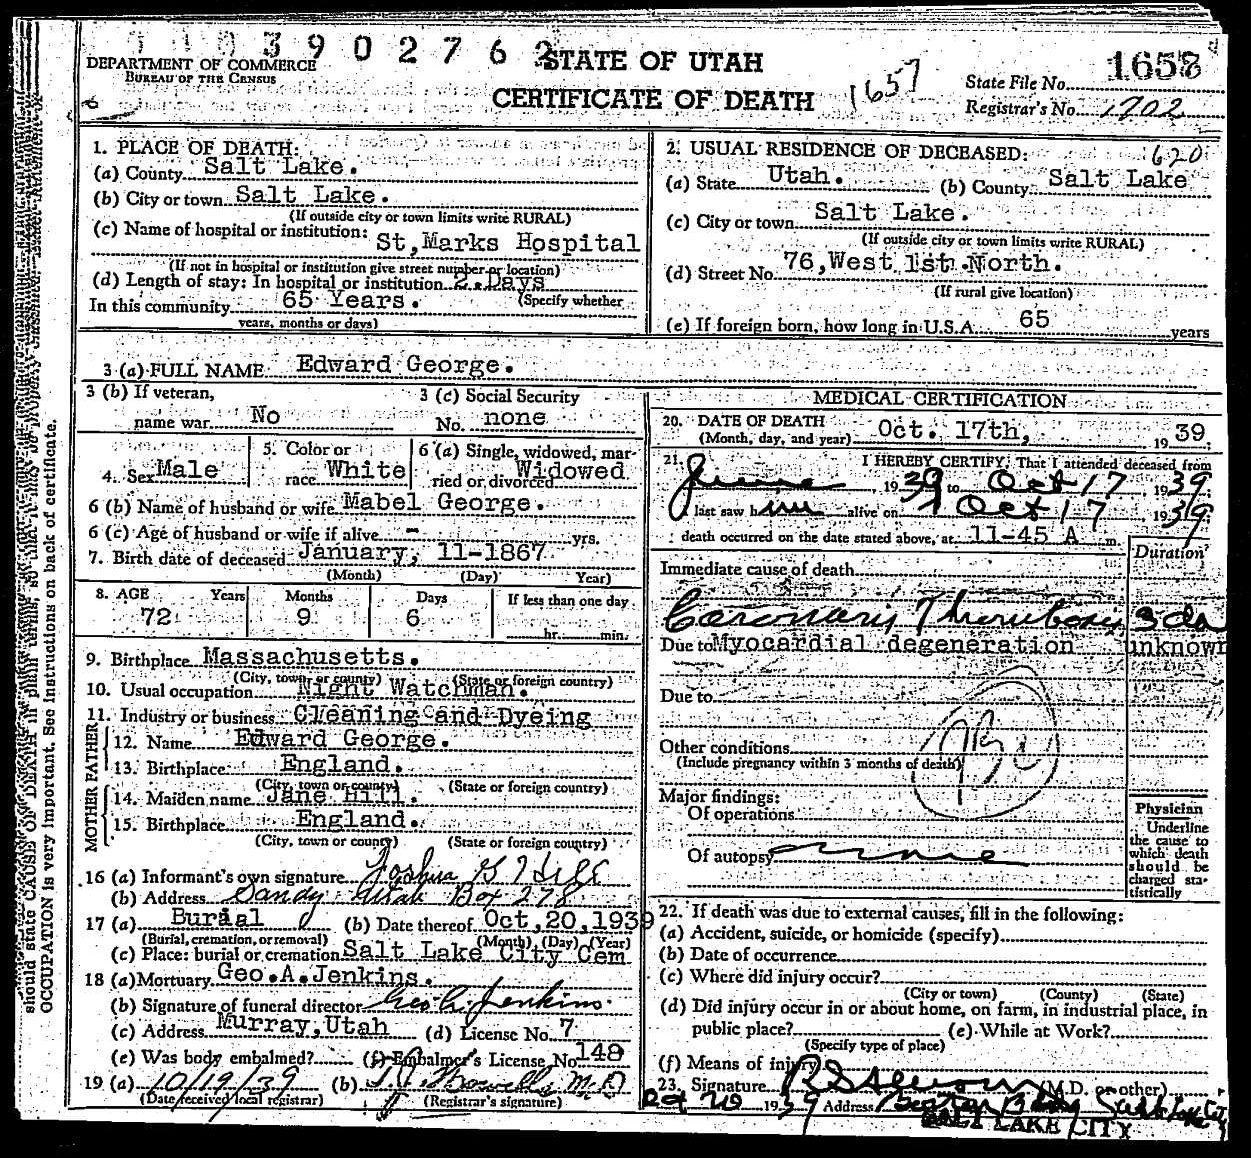 3902762
DEPARTMENT OF COMMERCE
BUREAU OF THE CENSUS
STATE OF UTAH
CERTIFICATE OF DEATH
1657
State File No. 1658
Registrar's No. 1702
1. PLACE OF DEATH:
(a) County Salt Lake.
(b) City or town Salt Lake.
(If outside city or town limits write RURAL)
(c) Name of hospital or institution:
St,Marks Hospital
(If not in hospital or institution give street number or location)
(d) Length of stay: In hospital or institution 2.Days
(Specify whether
In this community 65 Years.
years, months or days)
2. USUAL RESIDENCE OF DECEASED: 620
(a) State Utah. (b) County Salt Lake
(c) City or town Salt Lake.
(If outside city or town limits write RURAL)
(d) Street No. 76,West 1st.North.
(If rural give location)
(e) If foreign born, how long in U.S.A. 65 years
3 (a) FULL NAME Edward George.
3 (b) If veteran,
name war No
3 (c) Social Security
No. none
4. Sex Male
5. Color or
race White
6 (a) Single, widowed, mar-
ried or divorced Widowed
6 (b) Name of husband or wife Mabel George.
6 (c) Age of husband or wife if alive - yrs.
7. Birth date of deceased January, 11-1867
(Month) (Day) Year)
8. AGE Years Months Days If less than one day
72 9 6 hr. min.
9. Birthplace Massachusetts.
(City, town or county) (State or foreign country)
10. Usual occupation Night Watchman.
11. Industry or business Cleaning and Dyeing
FATHER
12. Name Edward George.
13. Birthplace England.
(City, town or county) (State or foreign country)
MOTHER
14. Maiden name Jane Hill.
15. Birthplace England.
(City, town or county) (State or foreign country)
16 (a) Informant's own signature Joshua G
(b) Address Sandy Utah Box 278
17 (a) Burial (b) Date thereof Oct,20,1939
(Burial, cremation, or removal) (Month), (Day) (Year)
(c) Place: burial or cremation Salt Lake City Cem
18 (a) Mortuary Geo.A.Jenkins.
(b) Signature of funeral director Geo A. Jenkins.
(c) Address Murray,Utah (d) License No. 7
(e) Was body embalmed? (f) Embalmer's License No. 148
19 (a) 10/19/39 (b) M.D
(Date received local registrar) (Registrar's signature)
MEDICAL CERTIFICATION
20. DATE OF DEATH
(Month, day, and year) Oct. 17th, 1939
21. I HEREBY CERTIFY, That I attended deceased from
June, 1939 to Oct 17, 1939
I last saw him alive on Oct 17 1939
death occurred on the date stated above, at 11-45 A m.
Duration
Immediate cause of death
Coronary Thrombosis 3 da
Due to Myocardial degeneration unknown
Due to
Other conditions
(Include pregnancy within 3 months of death)
Major findings:
Of operations
Of autopsy none
Physician
Underline
the cause to
which death
should be
charged sta-
tistically
22. If death was due to external causes, fill in the following:
(a) Accident, suicide, or homicide (specify)
(b) Date of occurrence
(c) Where did injury occur?
(City or town) (County) (State)
(d) Did injury occur in or about home, on farm, in industrial place, in
public place? (e) While at Work?
(Specify type of place)
(f) Means of injury
23. Signature (M.D. or other)
Oct 20 1939 Address Salt Lake City
SALT LAKE CITY
should state CAUSE OF DEATH in plain terms, so that it may be properly
OCCUPATION is very important. See instructions on back of certificate.